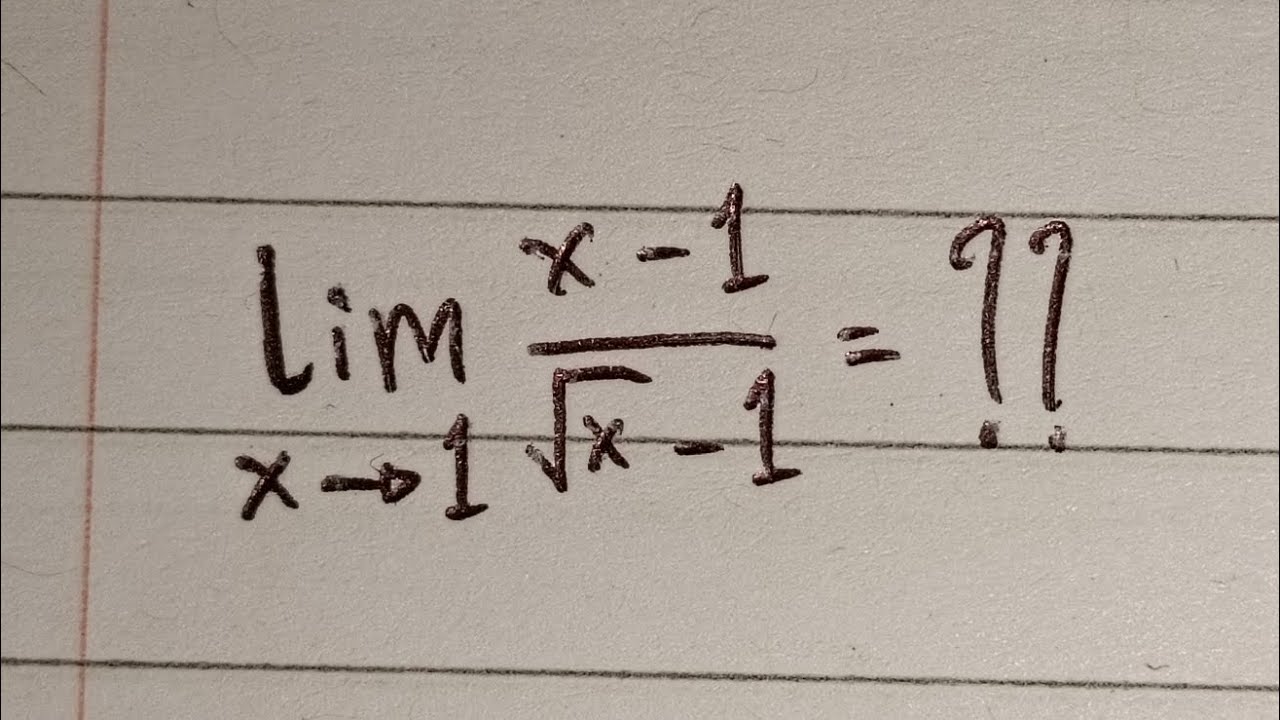 lim x→1 (x - 1)/(√x - 1) = ??